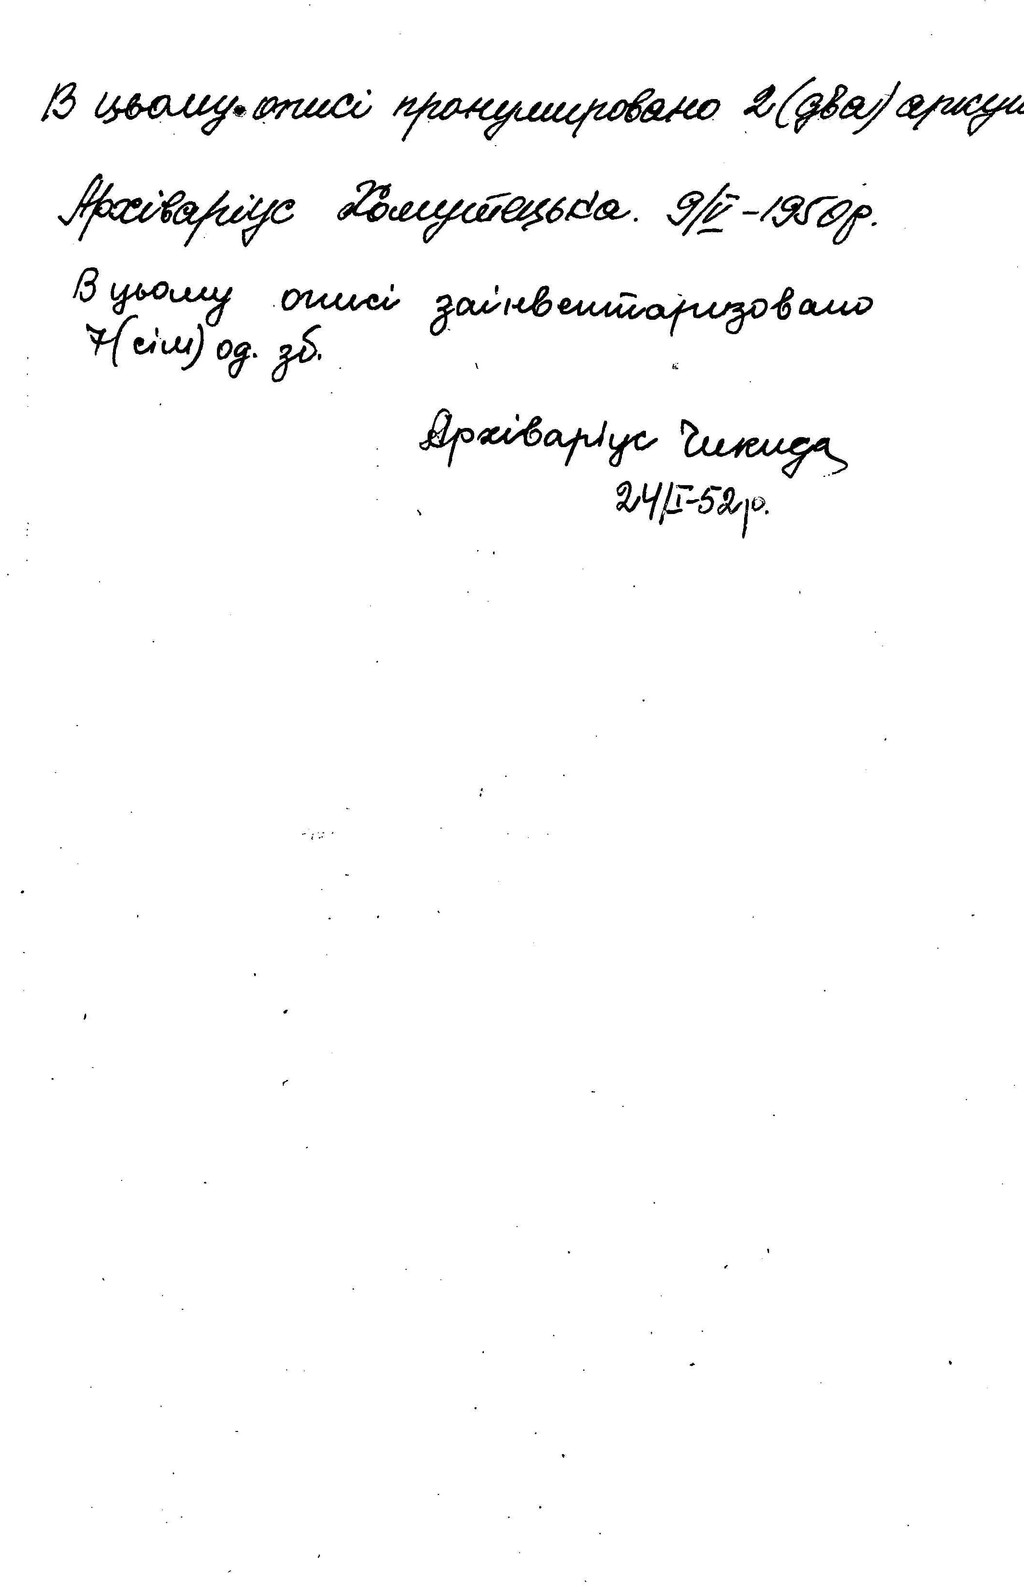 В цьому описі пронумеровано 2 (два) аркуш
Архіваріус Хомутецька. 9/V-1950р.
В цьому описі заінвентаризовано
7 (сім) од. зб.
Архіваріус Чикида
24/I-52р.